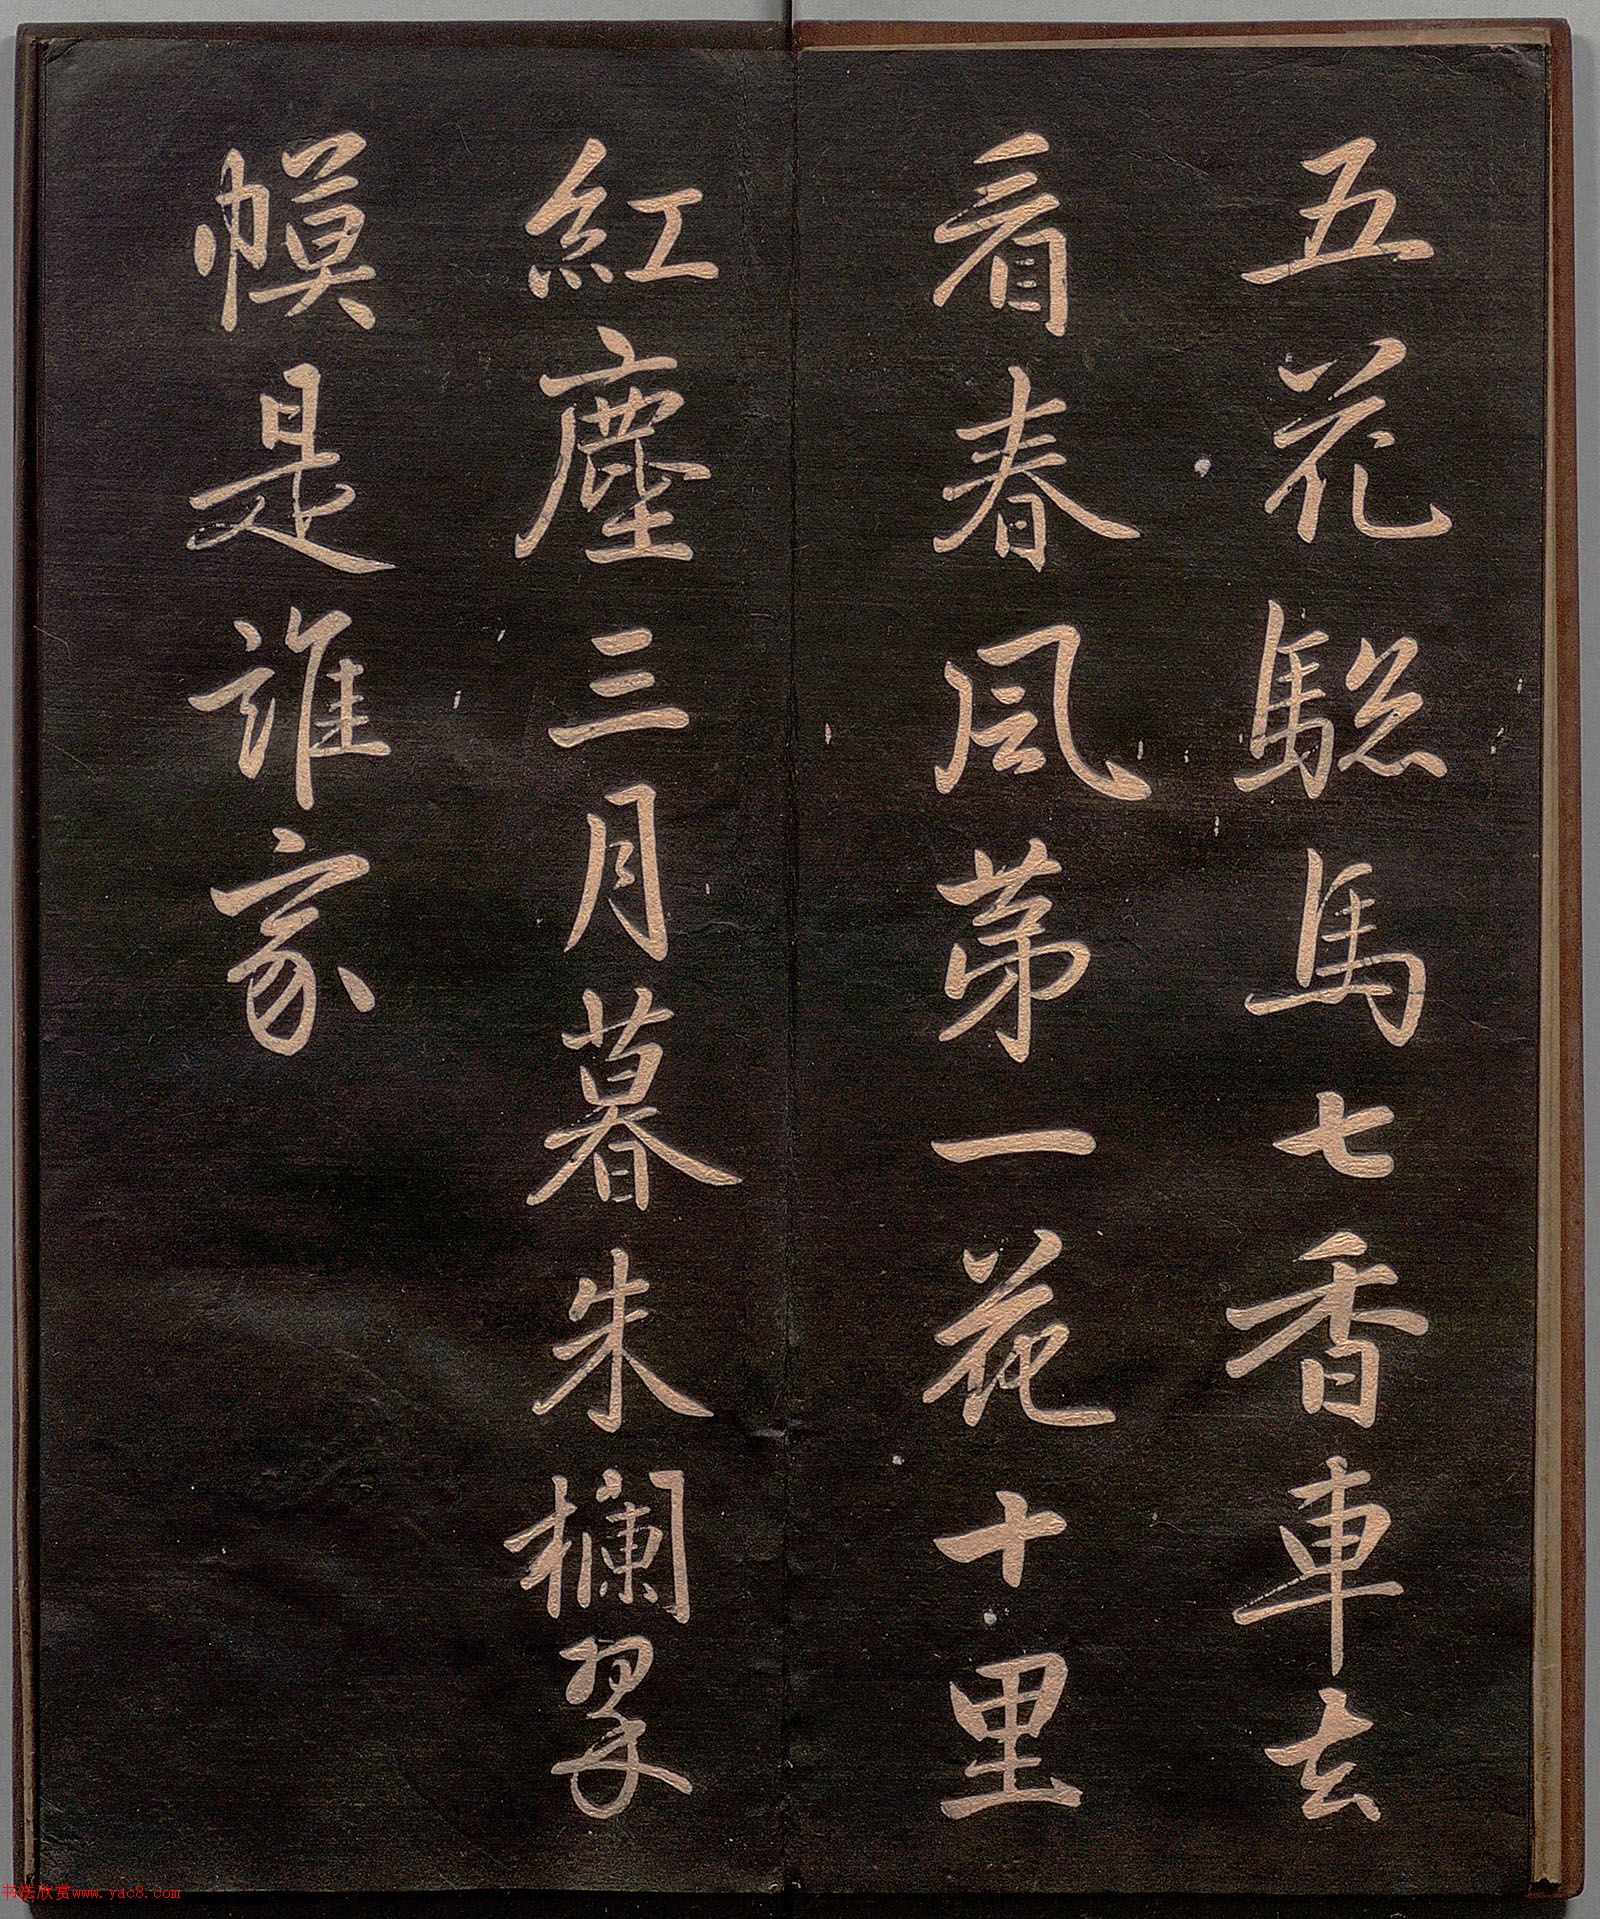 五花驄馬七香車去
看春風第一花十里
紅塵三月暮朱欄翠
幙是誰家
书法欣赏www.yac8.com